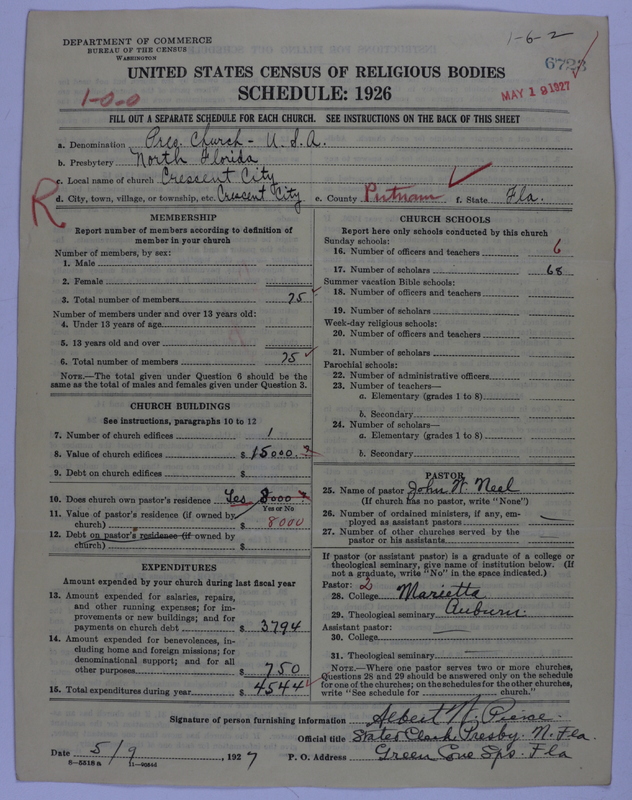 DEPARTMENT OF COMMERCE
BUREAU OF THE CENSUS
WASHINGTON
1-6-2
MAY 19 1927
UNITED STATES CENSUS OF RELIGIOUS BODIES
SCHEDULE: 1926
1-0-0
FILL OUT A SEPARATE SCHEDULE FOR EACH CHURCH. SEE INSTRUCTIONS ON THE BACK OF THIS SHEET
a. Denomination Pres. Church - U.S.A.
b. Presbytery North Florida
c. Local name of church Crescent City
d. City, town, village, or township, etc. Crescent City e. County Putnam f. State Fla.
R
MEMBERSHIP
Report number of members according to definition of
member in your church
Number of members, by sex:
1. Male
2. Female
3. Total number of members 75
Number of members under and over 13 years old:
4. Under 13 years of age
5. 13 years old and over
6. Total number of members 75
NOTE.—The total given under Question 6 should be
the same as the total of males and females given under Question 3.
CHURCH BUILDINGS
See instructions, paragraphs 10 to 12
7. Number of church edifices 1
8. Value of church edifices $ 15000.
9. Debt on church edifices $
10. Does church own pastor's residence Yes 8000
Yes or No
11. Value of pastor's residence (if owned by
church) $ 8000
12. Debt on pastor's residence (if owned by
church) $
EXPENDITURES
Amount expended by your church during last fiscal year
13. Amount expended for salaries, repairs,
and other running expenses; for im-
provements or new buildings; and for
payments on church debt $ 3794
14. Amount expended for benevolences, in-
cluding home and foreign missions; for
denominational support; and for all
other purposes $ 750
15. Total expenditures during year $ 4544
CHURCH SCHOOLS
Report here only schools conducted by this church
Sunday schools:
16. Number of officers and teachers 6
17. Number of scholars 68
Summer vacation Bible schools:
18. Number of officers and teachers
19. Number of scholars
Week-day religious schools:
20. Number of officers and teachers
21. Number of scholars
Parochial schools:
22. Number of administrative officers
23. Number of teachers—
a. Elementary (grades 1 to 8)
b. Secondary
24. Number of scholars—
a. Elementary (grades 1 to 8)
b. Secondary
PASTOR
25. Name of pastor John W. Neel
(If church has no pastor, write "None")
26. Number of ordained ministers, if any, em-
ployed as assistant pastors —
27. Number of other churches served by the
pastor or his assistants —
If pastor (or assistant pastor) is a graduate of a college or
theological seminary, give name of institution below. (If
not a graduate, write "No" in the space indicated.)
Pastor: 2
28. College Marietta
29. Theological seminary Auburn
Assistant pastor:
30. College —
31. Theological seminary —
NOTE.—Where one pastor serves two or more churches,
Questions 28 and 29 should be answered only on the schedule
for one of the churches; on the schedules for the other churches,
write "See schedule for church."
Signature of person furnishing information Albert N. Pierce.
Official title Stated Clerk Presby. N. Fla.
Date 5/9, 1927 P. O. Address Green Cove Sps. Fla
8-5318a